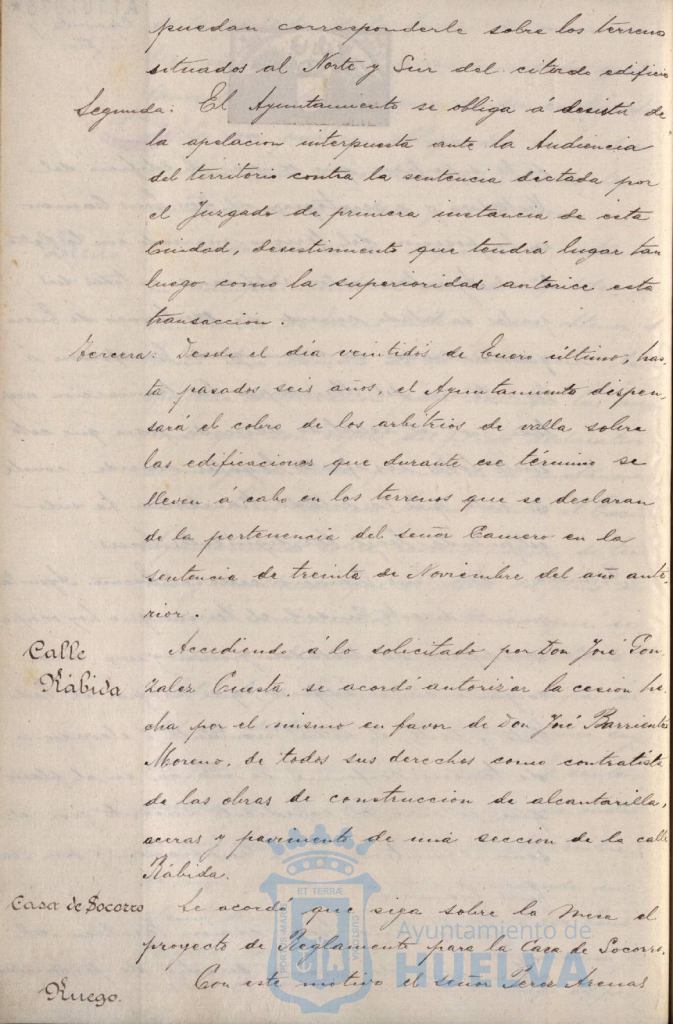 puedan corresponderle sobre los terrenos
situados al Norte y Sur del citado edificio
Segunda: El Ayuntamiento se obliga á desistir de
la apelacion interpuesta ante la Audiencia
del territorio contra la sentencia dictada por
el Juzgado de primera instancia de esta
Ciudad, desestimiento que tendrá lugar tan
luego como la superioridad autorice esta
transaccion.
Tercera: Desde el día veintidós de Enero último, has-
ta pasados seis años, el Ayuntamiento dispen-
sará el cobro de los arbitrios de valla sobre
las edificaciones que durante ese término se
lleven á cabo en los terrenos que se declaran
de la pertenencia del señor Camero en la
sentencia de treinta de Noviembre del año ante-
rior.
Calle
Rábida
Accediendo á lo solicitado por Don José Gon-
zalez Cuesta, se acordó autorizar la cesion he-
cha por el mismo en favor de Don José Barrientos
Moreno, de todos sus derechos como contratista
de las obras de construccion de alcantarilla,
aceras y pavimento de una seccion de la calle
Rábida.
Casa de Socorro
Se acordó que siga sobre la mesa el
proyecto de Reglamento para la Casa de Socorro.
Ruego.
Con este motivo el señor Perez Arenas
ET TERRÆ
PORTUS MARIS
CUSTODIA
Ayuntamiento de
HUELVA